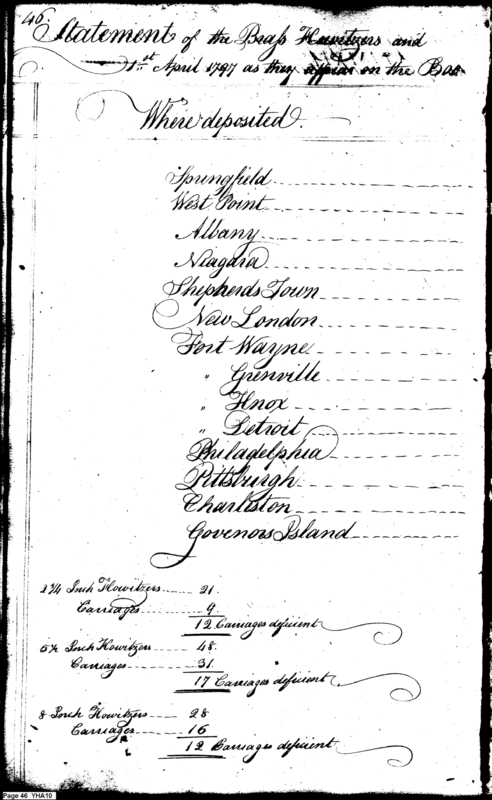 46.
Statement of the Brass Howitzers and
1st April 1797 as they appear on the Boo
Where deposited.
Springfield
West Point
Albany
Niagara
Shepherds Town
New London
Fort Wayne
" Grenville
" Knox
" Detroit
Philadelphia
Pittsburgh
Charleston
Govenors Island
2 3/4 Inch Howitzers 21.
Carriages 9.
12 Carriages deficient
5 1/2 Inch Howitzers 48.
Carriages 31.
17 Carriages deficient
8 Inch Howitzers 28
Carriages 16
12 Carriages deficient
Page 46 YHA10